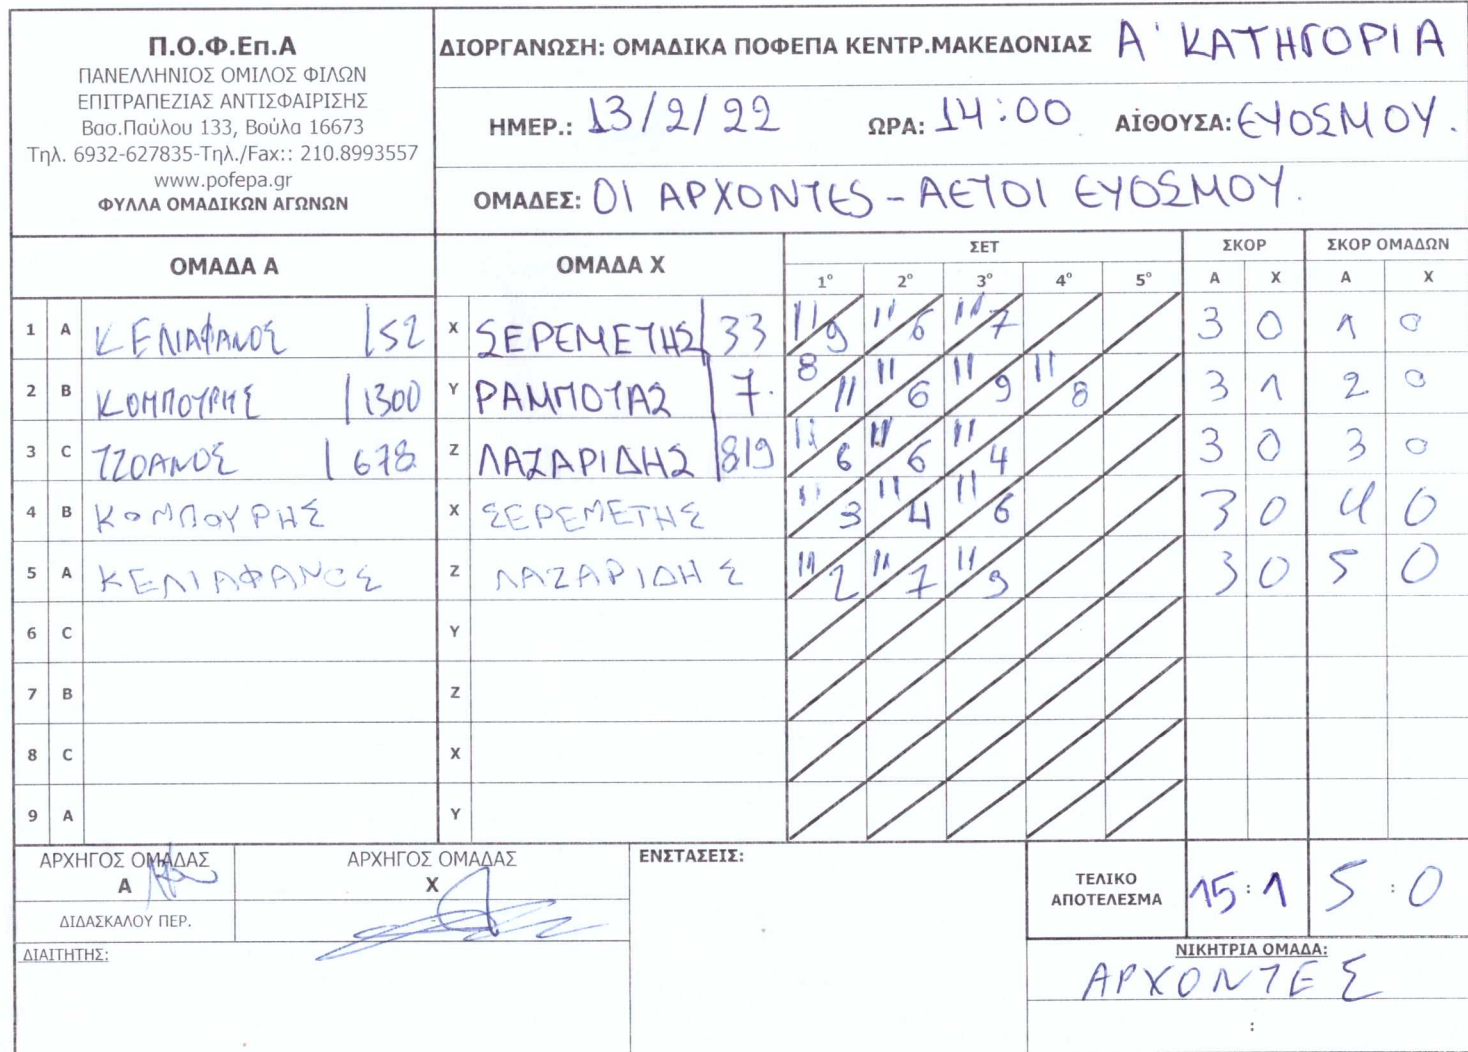 Π.Ο.Φ.Επ.Α
ΠΑΝΕΛΛΗΝΙΟΣ ΟΜΙΛΟΣ ΦΙΛΩΝ
ΕΠΙΤΡΑΠΕΖΙΑΣ ΑΝΤΙΣΦΑΙΡΙΣΗΣ
Βασ.Παύλου 133, Βούλα 16673
Τηλ. 6932-627835-Τηλ./Fax:: 210.8993557
www.pofepa.gr
ΦΥΛΛΑ ΟΜΑΔΙΚΩΝ ΑΓΩΝΩΝ
ΔΙΟΡΓΑΝΩΣΗ: ΟΜΑΔΙΚΑ ΠΟΦΕΠΑ ΚΕΝΤΡ.ΜΑΚΕΔΟΝΙΑΣ Α' ΚΑΤΗΓΟΡΙΑ
ΗΜΕΡ.: 13/2/22 ΩΡΑ: 14:00 ΑΙΘΟΥΣΑ: ΕΥΟΣΜΟΥ.
ΟΜΑΔΕΣ: ΟΙ ΑΡΧΟΝΤΕΣ - ΑΕΤΟΙ ΕΥΟΣΜΟΥ.
ΟΜΑΔΑ Α ΟΜΑΔΑ Χ ΣΕΤ ΣΚΟΡ ΣΚΟΡ ΟΜΑΔΩΝ
1° 2° 3° 4° 5° Α Χ Α Χ
1 A ΚΕΛΙΑΦΑΝΟΣ /52 X ΣΕΡΕΜΕΤΗΣ/33 11/9 11/6 11/7 3 0 1 0
2 B ΚΟΜΠΟΥΡΗΣ /1300 Y ΡΑΜΠΟΤΑΣ /7. 8/11 11/6 11/9 11/8 3 1 2 0
3 C ΤΖΟΑΝΟΣ /678 Z ΛΑΖΑΡΙΔΗΣ /819 11/6 11/6 11/4 3 0 3 0
4 B ΚΟΜΠΟΥΡΗΣ X ΣΕΡΕΜΕΤΗΣ 11/3 11/4 11/6 3 0 4 0
5 A ΚΕΛΙΑΦΑΝΟΣ Z ΛΑΖΑΡΙΔΗΣ 11/2 11/7 11/9 3 0 5 0
6 C Y
7 B Z
8 C X
9 A Y
ΑΡΧΗΓΟΣ ΟΜΑΔΑΣ Α ΑΡΧΗΓΟΣ ΟΜΑΔΑΣ Χ ΕΝΣΤΑΣΕΙΣ: ΤΕΛΙΚΟ ΑΠΟΤΕΛΕΣΜΑ 15:1 5:0
ΔΙΔΑΣΚΑΛΟΥ ΠΕΡ.
ΔΙΑΙΤΗΤΗΣ:
ΝΙΚΗΤΡΙΑ ΟΜΑΔΑ:
ΑΡΧΟΝΤΕΣ
: